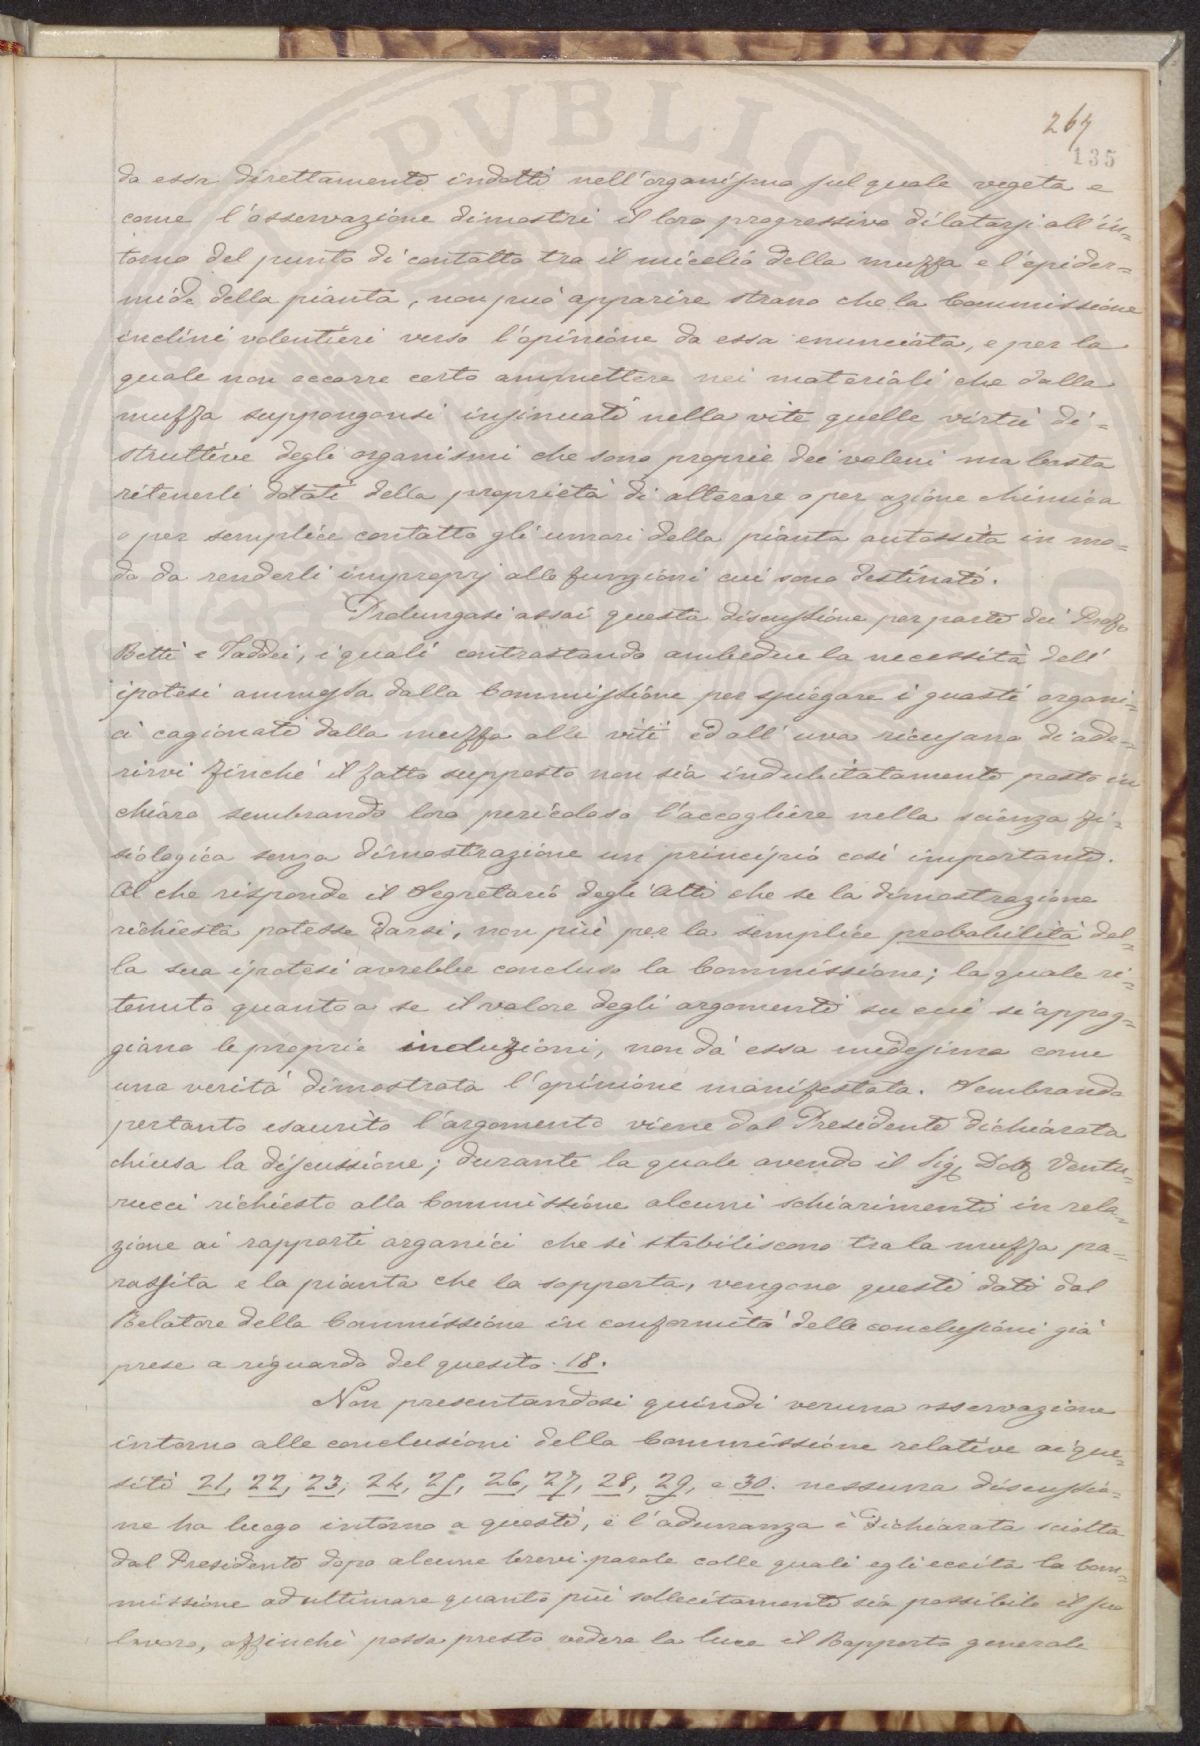 PVBLICA
267
135
da essa direttamente indotti nell'organismo sul quale vegeta e
come l'osservazione dimostri il loro progressivo dilatarsi all'in-
torno del punto di contatto tra il micelio della muffa e l'epider-
mide della pianta, non può apparire strano che la Commissione
inclini volentieri verso l'opinione da essa enunciata, e per la
quale non occorre certo ammettere nei materiali che dalla
muffa suppongonsi insinuati nella vite quelle virtù di-
struttive degli organismi che sono proprie dei veleni ma basta
ritenerli dotati della proprietà di alterare o per azione chimica
o per semplice contatto gli umori della pianta autossita in mo-
do da renderli improprj alle funzioni cui sono destinati.
Prolungasi assai questa discussione per parte dei Prof.
Betti e Taddei, i quali contrastando ambedue la necessità dell'
ipotesi ammessa dalla Commissione per spiegare i guasti organi-
ci cagionati dalla muffa alle viti ed all'uva ricusano di ade-
rirvi finchè il fatto supposto non sia indubitatamente posto in
chiaro sembrando loro pericoloso l'accogliere nella scienza fi-
siologica senza dimostrazione un principio così importante.
Al che risponde il Segretario degli Atti che se la dimostrazione
richiesta potesse darsi, non più per la semplice probabilità del-
la sua ipotesi avrebbe concluso la Commissione; la quale ri-
tenuto quanto a se il valore degli argomenti su cui si appog-
giano le proprie induzioni, non dà essa medesima come
una verità dimostrata l'opinione manifestata. Sembrando
pertanto esaurito l'argomento viene dal Presidente dichiarata
chiusa la discussione; durante la quale avendo il Sig. Dott. Ventu-
rucci richiesto alla Commissione alcuni schiarimenti in rela-
zione ai rapporti organici che si stabiliscono tra la muffa pa-
rassita e la pianta che la sopporta, vengono questi dati dal
Relatore della Commissione in conformità delle conclusioni già
prese a riguardo del quesito 18.
Non presentandosi quindi veruna osservazione
intorno alle conclusioni della Commissione relative ai que-
siti 21, 22, 23, 24, 25, 26, 27, 28, 29, e 30. nessuna discussio-
ne ha luogo intorno a questi, e l'adunanza è dichiarata sciolta
dal Presidente dopo alcune brevi parole colle quali egli eccita la Com-
missione ad ultimare quanto più sollecitamente sia possibile il suo
lavoro, affinchè possa presto vedere la luce il Rapporto generale